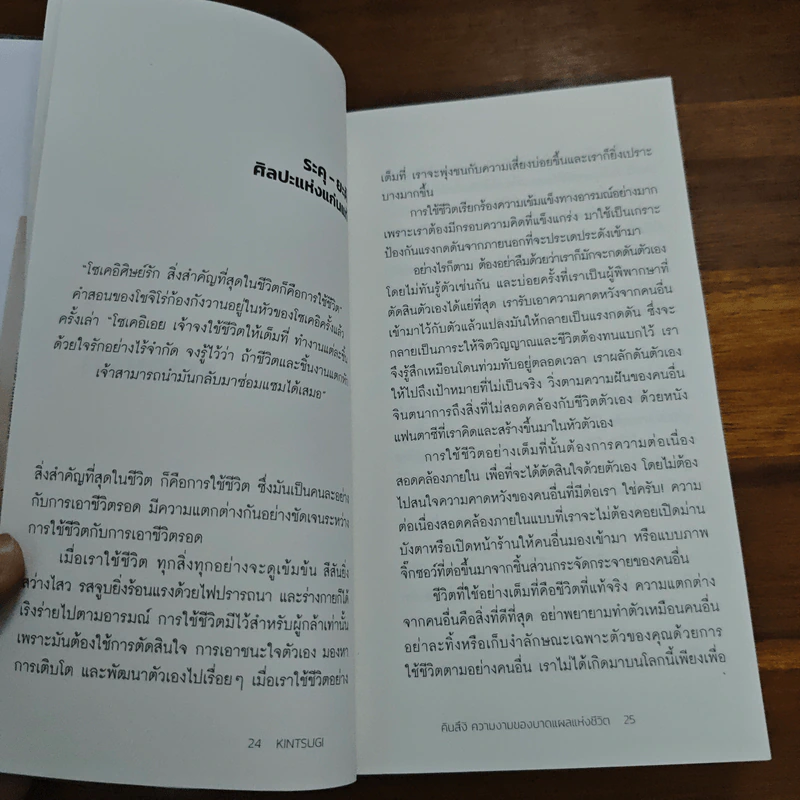 ระคุ -
ศิลปะแห่งแก่น
"โซเคอิศิษย์รัก สิ่งสำคัญที่สุดในชีวิตก็คือการใช้ชีวิต"
คำสอนของโชจิโร่ก้องกังวานอยู่ในหัวของโซเคอิครั้งแล้ว
ครั้งเล่า "โซเคอิเอย เจ้าจงใช้ชีวิตให้เต็มที่ ทำงานแต่ละชิ้น
ด้วยใจรักอย่างไร้จำกัด จงรู้ไว้ว่า ถ้าชีวิตและชิ้นงานแตก
เจ้าสามารถนำมันกลับมาซ่อมแซมได้เสมอ"
สิ่งสำคัญที่สุดในชีวิต ก็คือการใช้ชีวิต ซึ่งมันเป็นคนละอย่าง
กับการเอาชีวิตรอด มีความแตกต่างกันอย่างชัดเจนระหว่าง
การใช้ชีวิตกับการเอาชีวิตรอด
เมื่อเราใช้ชีวิต ทุกสิ่งทุกอย่างจะดูเข้มข้น สีสันยิ่ง
สว่างไสว รสจูบยิ่งร้อนแรงด้วยไฟปรารถนา และร่างกายก็ได้
เริงร่ายไปตามอารมณ์ การใช้ชีวิตมีไว้สำหรับผู้กล้าเท่านั้น
เพราะมันต้องใช้การตัดสินใจ การเอาชนะใจตัวเอง มองหา
การเติบโต และพัฒนาตัวเองไปเรื่อยๆ เมื่อเราใช้ชีวิตอย่าง
24 KINTSUGI
เต็มที่ เราจะพุ่งชนกับความเสี่ยงบ่อยขึ้นและเราก็ยิ่งเปราะ
บางมากขึ้น
การใช้ชีวิตเรียกร้องความเข้มแข็งทางอารมณ์อย่างมาก
เพราะเราต้องมีกรอบความคิดที่แข็งแกร่ง มาใช้เป็นเกราะ
ป้องกันแรงกดดันจากภายนอกที่จะประเดประดังเข้ามา
อย่างไรก็ตาม ต้องอย่าลืมด้วยว่าเราก็มักจะกดดันตัวเอง
โดยไม่ทันรู้ตัวเช่นกัน และบ่อยครั้งที่เราเป็นผู้พิพากษาที่
ตัดสินตัวเองได้แย่ที่สุด เรารับเอาความคาดหวังจากคนอื่น
เข้ามาไว้กับตัวแล้วแปลงมันให้กลายเป็นแรงกดดัน ซึ่งจะ
กลายเป็นภาระให้จิตวิญญาณและชีวิตต้องทนแบกไว้ เรา
จึงรู้สึกเหมือนโดนท่วมทับอยู่ตลอดเวลา เราผลักดันตัวเอง
ให้ไปถึงเป้าหมายที่ไม่เป็นจริง วิ่งตามความฝันของคนอื่น
จินตนาการถึงสิ่งที่ไม่สอดคล้องกับชีวิตตัวเอง ด้วยหนัง
แฟนตาซีที่เราคิดและสร้างขึ้นมาในหัวตัวเอง
การใช้ชีวิตอย่างเต็มที่นั้นต้องการความต่อเนื่อง
สอดคล้องภายใน เพื่อที่จะได้ตัดสินใจด้วยตัวเอง โดยไม่ต้อง
ไปสนใจความคาดหวังของคนอื่นที่มีต่อเรา ใช่ครับ! ความ
ต่อเนื่องสอดคล้องภายในแบบที่เราจะไม่ต้องคอยเปิดม่าน
บังตาหรือเปิดหน้าร้านให้คนอื่นมองเข้ามา หรือแบบภาพ
จิ๊กซอว์ที่ต่อขึ้นมาจากชิ้นส่วนกระจัดกระจายของคนอื่น
ชีวิตที่ใช้อย่างเต็มที่คือชีวิตที่แท้จริง ความแตกต่าง
จากคนอื่นคือสิ่งที่ดีที่สุด อย่าพยายามทำตัวเหมือนคนอื่น
อย่าละทิ้งหรือเก็บงำลักษณะเฉพาะตัวของคุณด้วยการ
ใช้ชีวิตตามอย่างคนอื่น เราไม่ได้เกิดมาบนโลกนี้เพียงเพื่อ
คินสึงิ ความงามของบาดแผลแห่งชีวิต 25